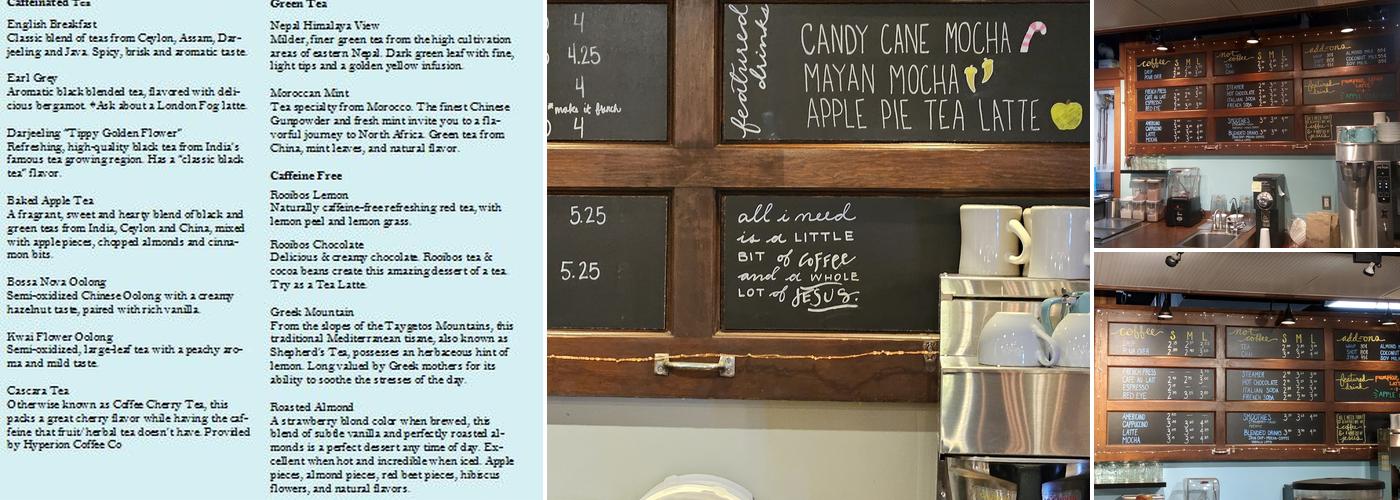 Caffeinated Tea
English Breakfast
Classic blend of teas from Ceylon, Assam, Dar-
jeeling and Java. Spicy, brisk and aromatic taste.
Earl Grey
Aromatic black blended tea, flavored with deli-
cious bergamot. *Ask about a London Fog latte.
Darjeeling "Tippy Golden Flower"
Refreshing, high-quality black tea from India's
famous tea growing region. Has a "classic black
tea" flavor.
Baked Apple Tea
A fragrant, sweet and hearty blend of black and
green teas from India, Ceylon and China, mixed
with apple pieces, chopped almonds and cinna-
mon bits.
Bossa Nova Oolong
Semi-oxidized Chinese Oolong with a creamy
hazelnut taste, paired with rich vanilla.
Kwai Flower Oolong
Semi-oxidized, large-leaf tea with a peachy aro-
ma and mild taste.
Cascara Tea
Otherwise known as Coffee Cherry Tea, this
packs a great cherry flavor while having the caf-
feine that fruit/herbal tea doesn't have. Provided
by Hyperion Coffee Co
Green Tea
Nepal Himalaya View
Milder, finer green tea from the high cultivation
areas of eastern Nepal. Dark green leaf with fine,
light tips and a golden yellow infusion.
Moroccan Mint
Tea specialty from Morocco. The finest Chinese
Gunpowder and fresh mint invite you to a fla-
vorful journey to North Africa. Green tea from
China, mint leaves, and natural flavor.
Caffeine Free
Rooibos Lemon
Naturally caffeine-free refreshing red tea, with
lemon peel and lemon grass.
Rooibos Chocolate
Delicious & creamy chocolate. Rooibos tea &
cocoa beans create this amazing dessert of a tea.
Try as a Tea Latte.
Greek Mountain
From the slopes of the Taygetos Mountains, this
traditional Mediterranean tisane, also known as
Shepherd's Tea, possesses an herbaceous hint of
lemon. Long valued by Greek mothers for its
ability to soothe the stresses of the day.
Roasted Almond
A strawberry blond color when brewed, this
blend of subtle vanilla and perfectly roasted al-
monds is a perfect dessert any time of day. Ex-
cellent when hot and incredible when iced. Apple
pieces, almond pieces, red beet pieces, hibiscus
flowers, and natural flavors.
4
4.25
4
makes it french
4
5.25
5.25
featured
drinks
CANDY CANE MOCHA
MAYAN MOCHA
APPLE PIE TEA LATTE
all i need
is a LITTLE
BIT of coffee
and a WHOLE
LOT of JESUS.
coffee S M L
not coffee S M L
add-ons
DRIP
POUR OVER
TEA
FRENCH PRESS
CAFE AU LAIT
ESPRESSO
RED EYE
STEAMER
HOT CHOCOLATE
ITALIAN SODA
FRENCH SODA
featured drink
AMERICANO
CAPPUCCINO
LATTE
MOCHA
SMOOTHIES
BLENDED DRINKS
coffee S M L
not coffee S M L
add-ons
DRIP
POUR OVER
TEA
FRENCH PRESS
CAFE AU LAIT
ESPRESSO
RED EYE
STEAMER
HOT CHOCOLATE
ITALIAN SODA
FRENCH SODA
featured drink
AMERICANO
CAPPUCCINO
LATTE
MOCHA
SMOOTHIES
BLENDED DRINKS